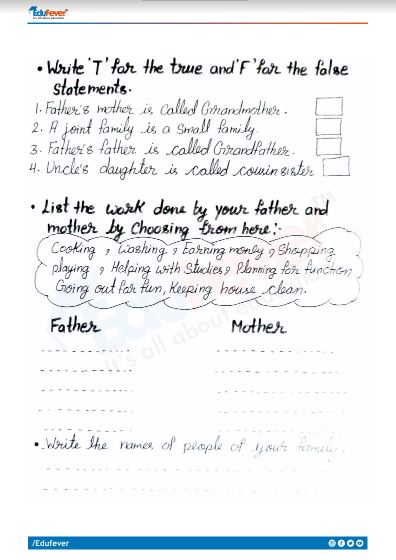 EduFever
It's all about education
• Write 'T' for the true and 'F' for the false
Statements.
1. Father's mother is called Grandmother.
2. A joint family is a small family.
3. Father's father is called Grandfather.
4. Uncle's daughter is called cousin sister
• List the work done by your father and
mother by Choosing from here:-
Cooking, Washing, Earning money, Shopping
playing, Helping with Studies, Planning for function
Going out for fun, Keeping house clean.
Father Mother
• Write the names of people of your family.
/Edufever